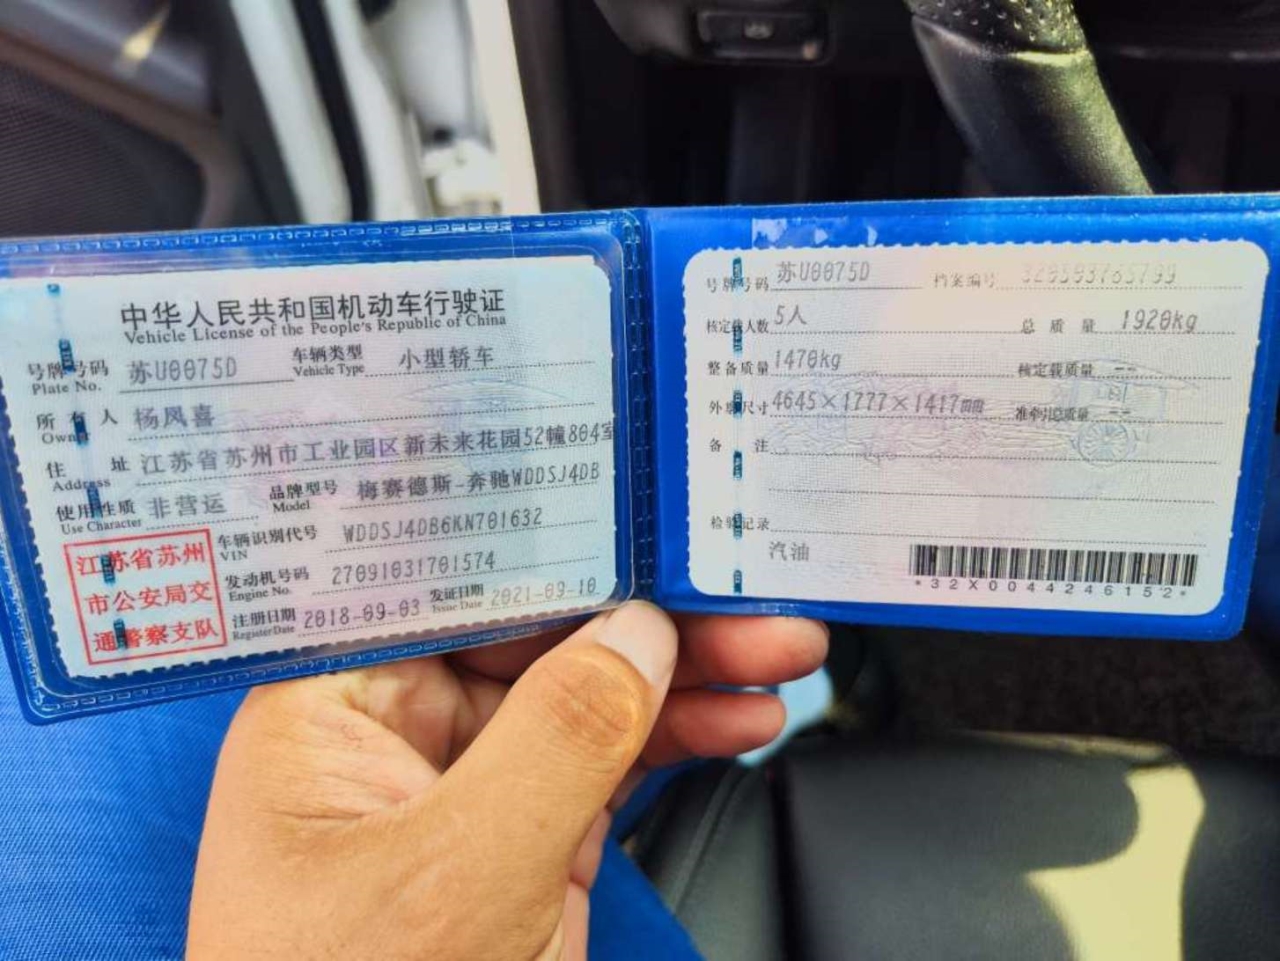 中华人民共和国机动车行驶证
Vehicle License of the People's Republic of China
号牌号码 Plate No. 苏U0075D 车辆类型 Vehicle Type 小型轿车
所有人 Owner 杨凤喜
住址 Address 江苏省苏州市工业园区新未来花园52幢804室
使用性质 Use Character 非营运 品牌型号 Model 梅赛德斯-奔驰WDDSJ4DB
江苏省苏州
市公安局交
通警察支队
车辆识别代号 VIN WDDSJ4DB6KN701632
发动机号码 Engine No. 27091031701574
注册日期 Register Date 2018-09-03 发证日期 Issue Date 2021-09-10
号牌号码 苏U0075D 档案编号
核定载人数 5人 总质量 1920kg
整备质量 1470kg 核定载质量 --
外廓尺寸 4645×1777×1417mm 准牵引总质量 --
备注
检验记录
汽油
*32X0044246152*